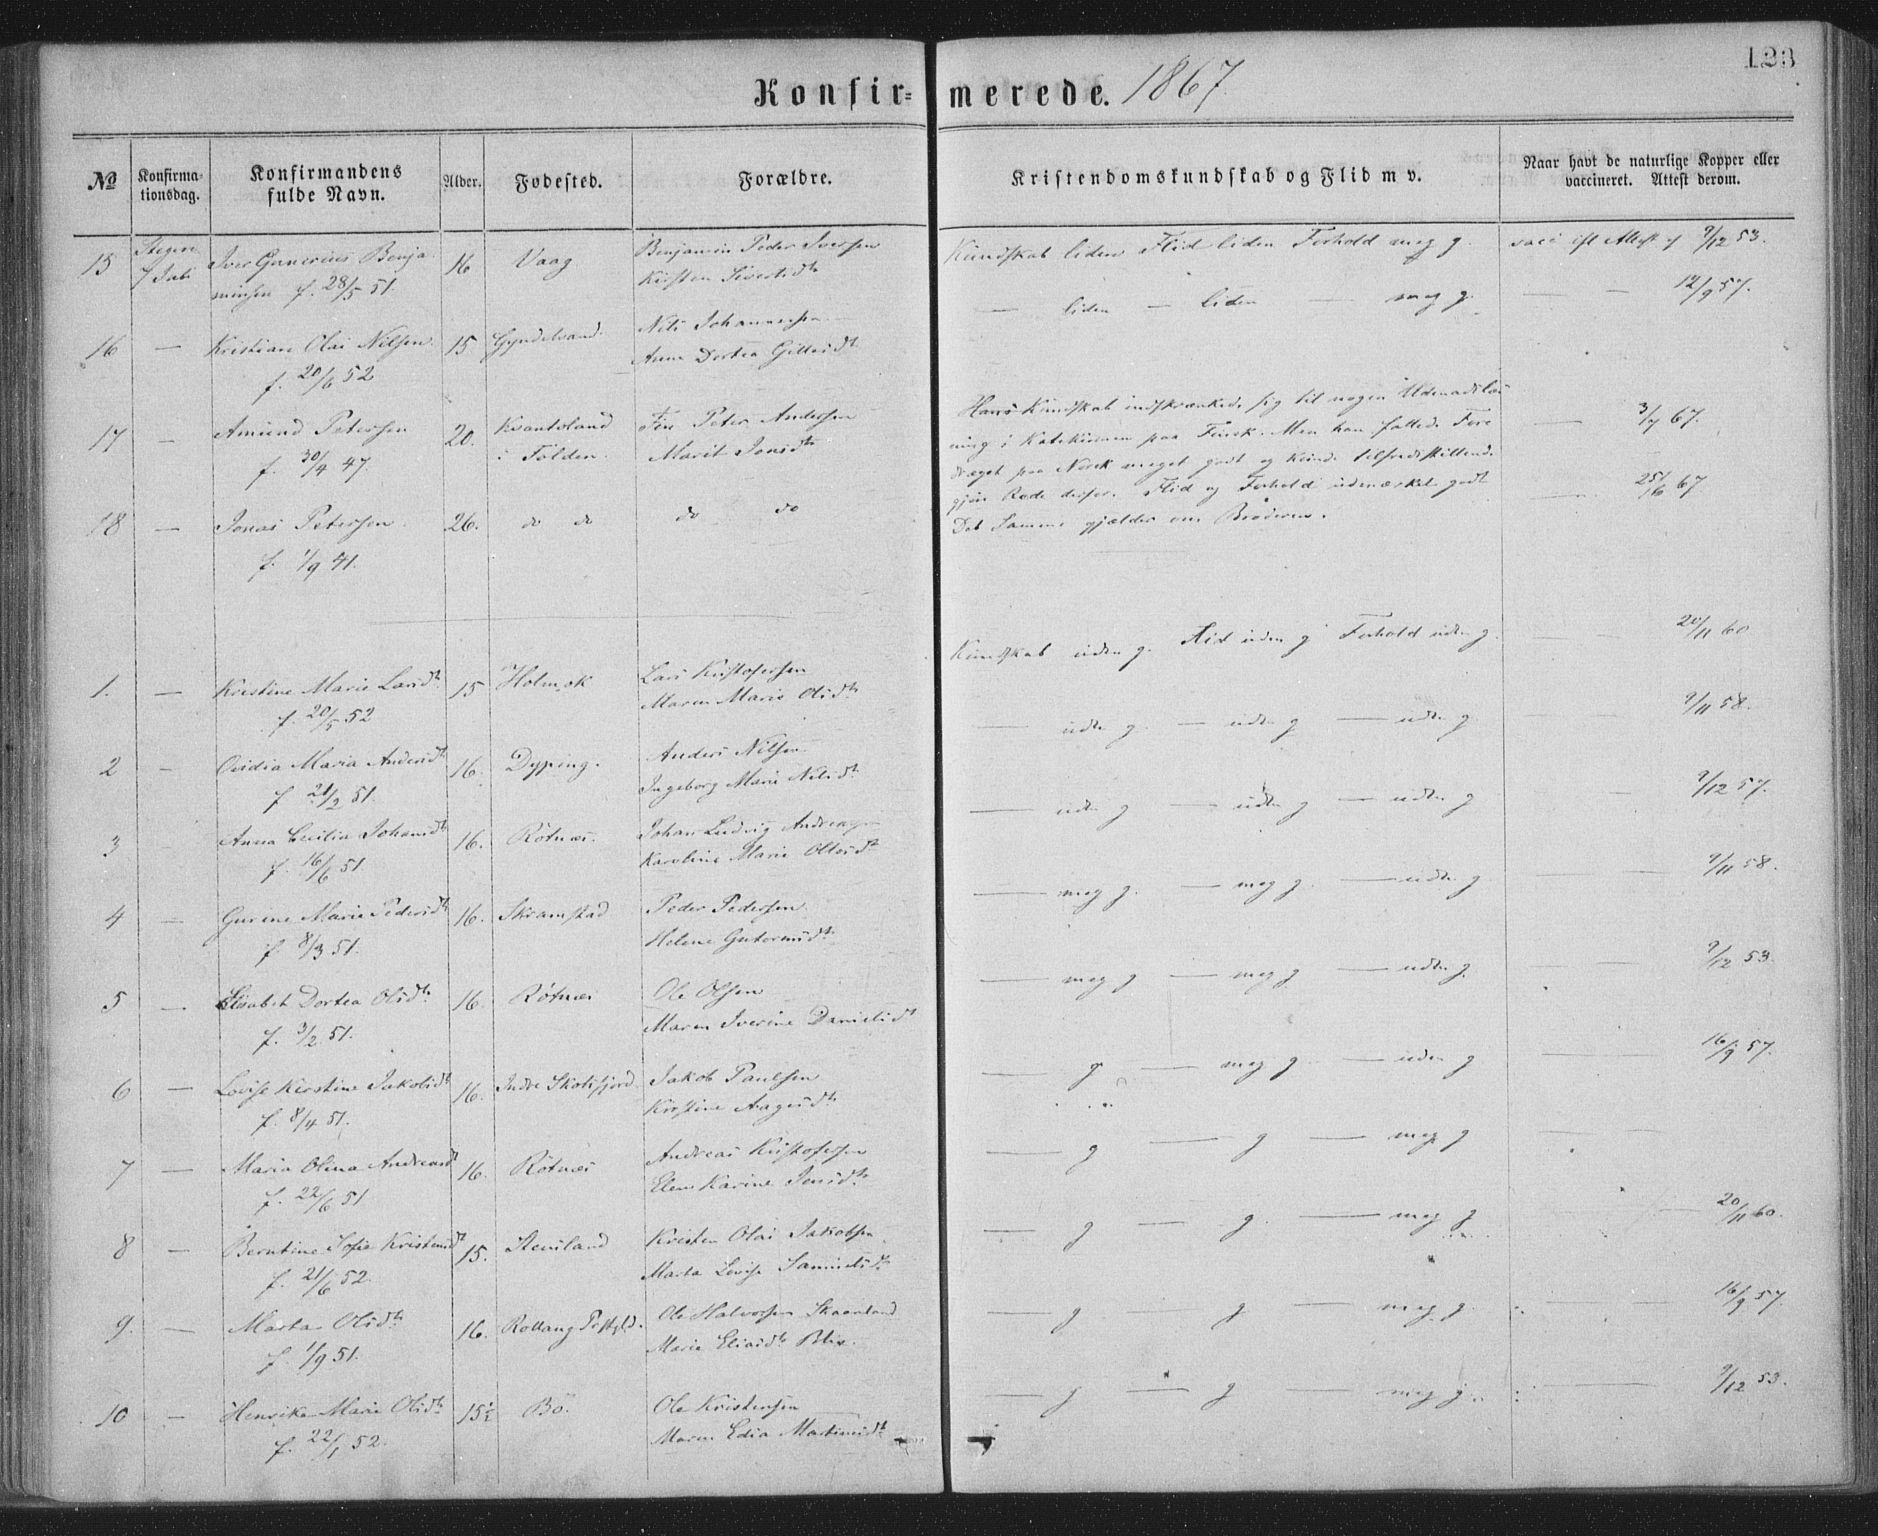 123
Konfir= merede. 1867
№ Konfirma- tionsdag. Konfirmandens fulde Navn. Alder. Fødested. Forældre. Kristendomskundskab og Flid m v. Naar havt de naturlige Kopper eller vaccineret. Attest derom.
15 7 Juli Iver Gunerius Benja- 16 Vaag Benjamin Peder Iversen Kundskab liden Flid liden Forhold meg g. vacc ifl Attest af 9/12 53.
minsen f. 28/5 51. Kirsten Sivertsdtr
16 — Kristian Olai Nilsen 15 Gyndelvand Nils Johannesen — liden — liden — meg g. — — 12/9 57.
f. 20/6 52 Anna Dortea
17 — Amund Petersen 20. i Folden. Fin Peter Andersen Hans Kundskab indskrænkede sig til nogen Udenadslæs — 3/7 67.
f. 30/4 47. Marit Jonsdtr ning i Katekismen paa Finsk. Men han fattede Fore
draget paa Norsk meget godt og kunde tilfredsstillende
gjøre Rede derfor. Flid og Forhold udmærket godt — 25/6 67
18 — Jonas Petersen. 26. do do do do Det Samme gjælder om Broderen.
f. 1/9 41.
1. — Kirstine Marie Larsdtr 15 Holmok Lars Kristofersen Kundskab uden g. Flid uden g Forhold uden g. — — 20/11 60
f. 20/5 52 Maren Marie Olsdtr
2 — Ovidia Maria Andersdtr 16. Dyping. Anders Nilsen — udm g. — udm g — udm g — — 9/11 58.
f. 21/2 51. Ingeborg Marie Nilsdtr
3 — Anna Cecilia Johansdtr 16. Røtnes. Johan Ludvig Andreasen — udm g — udm g — udm g — 9/12 57.
f. 16/6 51. Karoline Marie Olsdtr
4 — Gurine Marie Pedersdtr 16. Skramstad Peder Pedersen — meg g. — meg g. — udm g — — 9/11 58.
f 8/3 51. Helene Gutormsdtr
5 — Elisabet Dortea Olsdtr 16. Røtnes Ole Olsen — meg g — meg g — udm g. — — 9/12 53.
f. 3/2 51. Maren Iverine Danielsdtr
6 — Lovise Kirstine Jakobsdtr 16. Indre Skotsfjord Jakob Paulsen — g — meg g. — uden g — — 16/9 57.
f. 8/4 51. Kirstine Aagesdtr
7 — Maria Olina Andreasdtr 16. Røtnes Andreas Kristofersen — g — g — meg g — —
f. 22/6 51 Elen Karine Jensdtr
8 — Berntine Sofie Kristensdtr 15. Stensland Kristen Olai Jakobsen — g — g. — meg g — 20/11 60.
f. 21/6 52. Marta Lovise Samuelsdtr
9. — Marta Olsdtr 16. Rottang Ole Halvorsen Skaanland — g — g — meg g. — — 16/9 57.
f. 1/9 51. Marie Eliasdtr Blix.
10 — Henrika Marie Olsdtr 15½ Bø. Ole Kristensen — g — g — meg g. — — 9/12 53.
f. 22/1 52. Maren Edia Martinusdtr